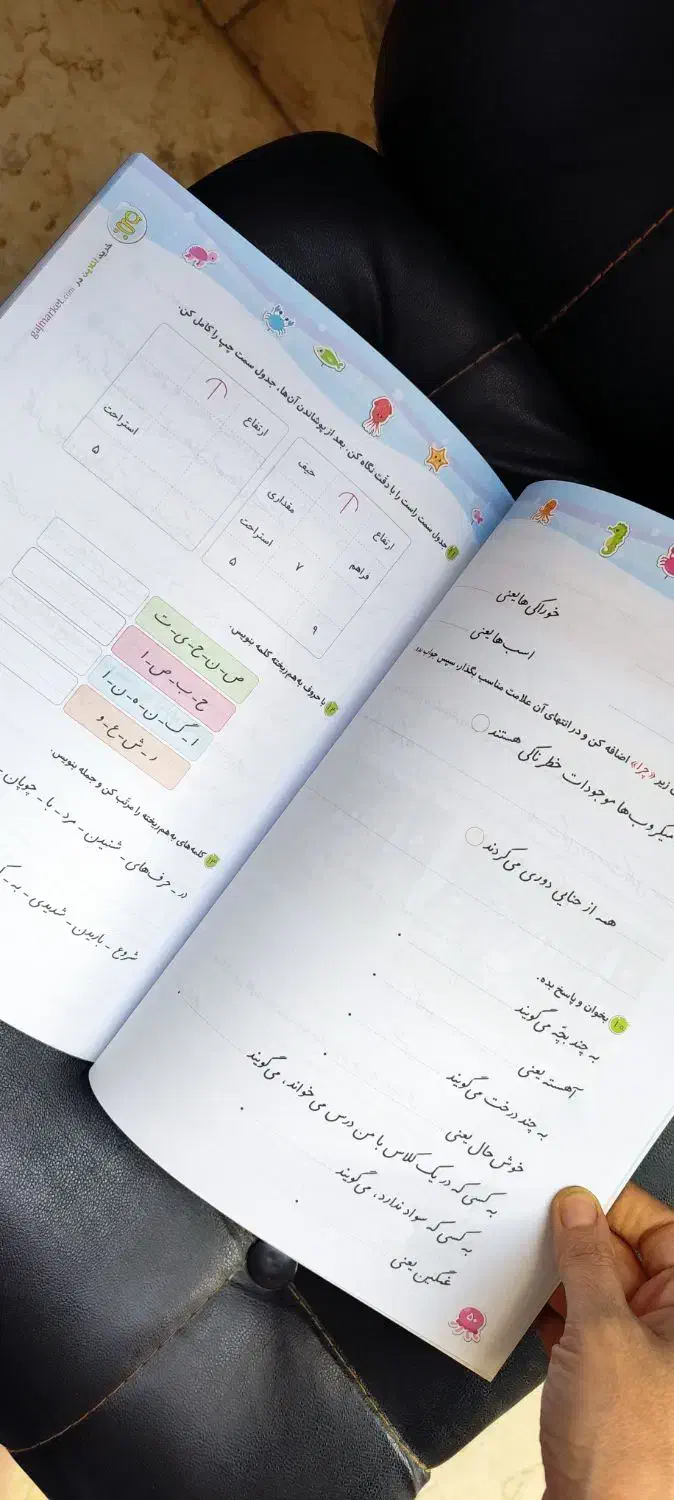 خوراکی‌ها یعنی
اسب‌ها یعنی
زیر «چرا» اضافه کن و در انتهای آن علامت مناسب بگذار، سپس جواب
میکروب‌ها موجودات خطرناکی هستند
همه از حنایی دوری می‌کردند
۱۰ بخوان و پاسخ بده.
به چند بچّه می‌گویند
آهسته یعنی
به چند درخت می‌گویند
خوش‌حال یعنی
به کسی که در یک کلاس با من درس می‌خواند، می‌گویند
به کسی که سواد ندارد، می‌گویند
غمگین یعنی
۵۰
خرید آنلاین در gajmarket.com
جدول سمت راست را با دقّت نگاه کن. بعد از پوشاندن آن‌ها، جدول سمت چپ را کامل کن.
ارتفاع حیف
فراهم مقداری
۷ استراحت
۹ ۵
ارتفاع
استراحت
۵
۱۲ با حروف به هم ریخته کلمه بنویس.
ص - ن - ح - ی - ت
ح - ب - ص - ا
ا - گ - ن - ه - ن - ا
ر - ش - ع - و
۱۳ کلمه‌های به هم ریخته را مرتّب کن و جمله بنویس.
در - حرف‌های - شنیدن - مرد - با - چوپان -
شروع - باریدن - شدیدی - به -